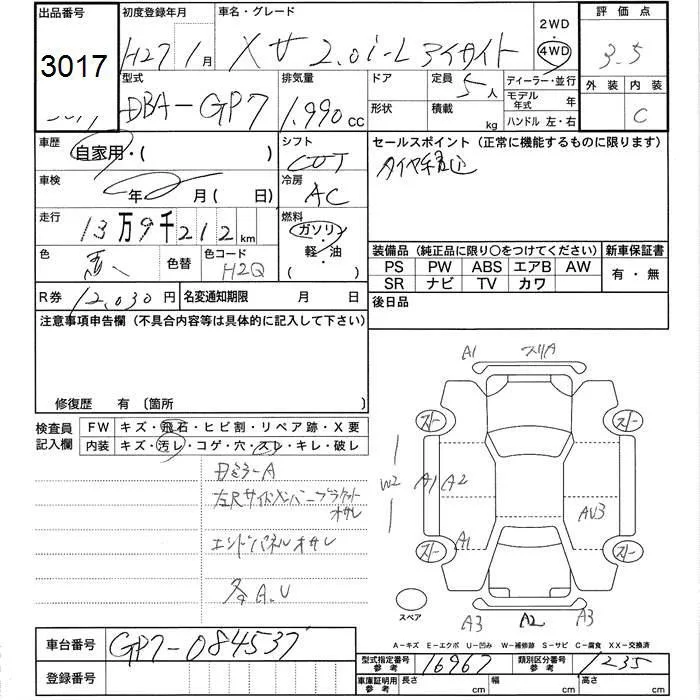 出品番号 初度登録年月 車名・グレード 2WD 評価点
3017 H27 1月 Xサ 2.0i-L アイサイト 4WD 3.5
型式 排気量 ドア 定員 ディーラー・並行 外装 内装
DBA-GP7 1,990cc 5人 モデル年式 年 C
形状 積載 kg ハンドル 左・右
車歴 自家用・( ) シフト セールスポイント(正常に機能するものに限ります)
CVT
車検 年 月( 日) 冷房 AC
走行 13万9千212km 燃料 ガソリン
軽・油
色 色替 色コード H2Q
装備品(純正品に限り〇をつけてください) 新車保証書
PS PW ABS エアB AW 有・無
SR ナビ TV カワ
R券 12,030円 名変通知期限 月 日 後日品
注意事項申告欄(不具合内容等は具体的に記入して下さい)
修復歴 有 (箇所
検査員記入欄 FW キズ・飛石・ヒビ割・リペア跡・X要
内装 キズ・汚レ・コゲ・穴・スレ・キレ・破レ
A1 スリA
スト スト
W2 A1 A2 AV3
A1
スト スト
左Rサイドメンバーブラケット
オサレ
エンドパネルオサレ
各A.U
スペア A3 A2 A3
A-キズ E-エクボ U-凹み W-補修跡 S-サビ C-腐食 XX-交換済
車台番号 GP7-084537
型式指定番号 参考 16967 類別区分番号 参考 1235
登録番号
車庫証明用参考 長さ cm 幅 cm 高さ cm